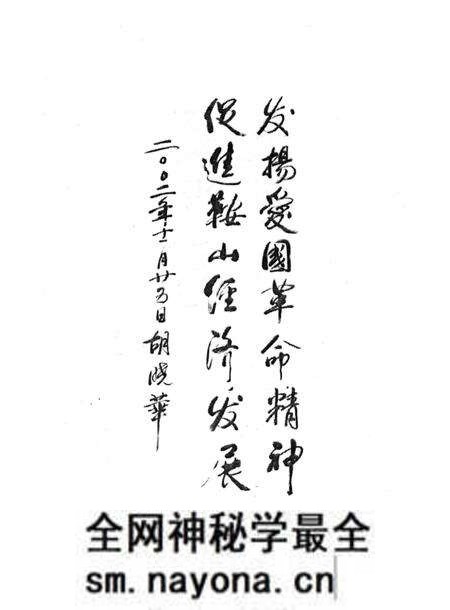 发揚愛國革命精神
促進鞍山經济发展
二〇〇二年十一月廿五日胡晓華
全网神秘学最全
sm.nayona.cn